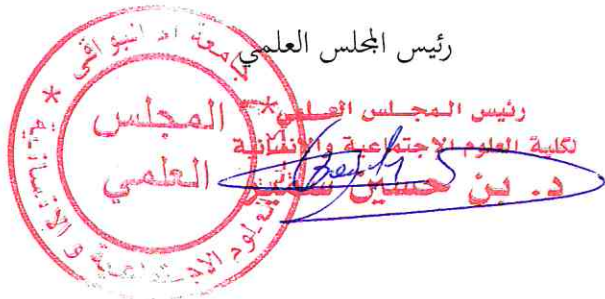 رئيس المجلس العلمي
رئيس المجلس العلمي
لكلية العلوم الاجتماعية والإنسانية
د. بن حسين
المجلس
العلمي
جامعة أم البواقي
العلوم الاجتماعية و الإنسانية